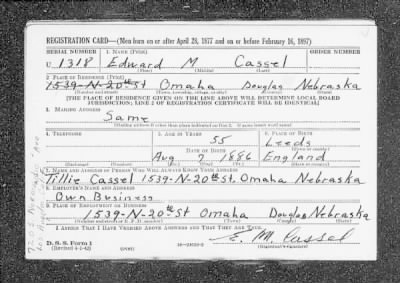 REGISTRATION CARD—(Men born on or after April 28, 1877 and on or before February 16, 1897)
SERIAL NUMBER 1. NAME (Print) ORDER NUMBER
U 1318 Edward M Cassel
(First) (Middle) (Last)
2. PLACE OF RESIDENCE (Print)
1539-N-20th St Omaha Douglas Nebraska
(Number and street) (Town, township, village, or city) (County) (State)
[THE PLACE OF RESIDENCE GIVEN ON THE LINE ABOVE WILL DETERMINE LOCAL BOARD
JURISDICTION; LINE 2 OF REGISTRATION CERTIFICATE WILL BE IDENTICAL]
3. MAILING ADDRESS
Same
[Mailing address if other than place indicated on line 2. If same insert word same]
4. TELEPHONE 5. AGE IN YEARS 6. PLACE OF BIRTH
55 Leeds
DATE OF BIRTH (Town or county)
Aug 7 1886 England
(Exchange) (Number) (Mo.) (Day) (Yr.) (State or country)
7. NAME AND ADDRESS OF PERSON WHO WILL ALWAYS KNOW YOUR ADDRESS
Tillie Cassel 1539-N-20th St. Omaha Nebraska
8. EMPLOYER'S NAME AND ADDRESS
Own Business
9. PLACE OF EMPLOYMENT OR BUSINESS
1539-N-20th St Omaha Douglas Nebraska
(Number and street or R. F. D. number) (Town) (County) (State)
I AFFIRM THAT I HAVE VERIFIED ABOVE ANSWERS AND THAT THEY ARE TRUE.
D. S. S. Form 1
(Revised 4-1-42) (over) E. M. Cassel
(Registrant's signature)